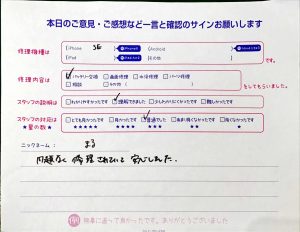 本日のご意見・ご感想など一言と確認のサインお願いします
修理機種は
iPhone SE
Android
iPad
その他
です。
修理内容は
バッテリー交換 画面修理 水没修理 パーツ修理
相談 その他
をしてもらいました。
スタッフの説明は
わかりやすかったです 理解できました 少しわかりにくかったです 難しかったです
スタッフの対応は
★星の数★
とても良かったです 良かったです 普通でした あまり良くなかったです 良くなかったです
★★★★★ ★★★★ ★★★ ★★ ★
ニックネーム： まる
問題なく修理されていて安心しました.
無事に直って良かったです。ありがとうございました